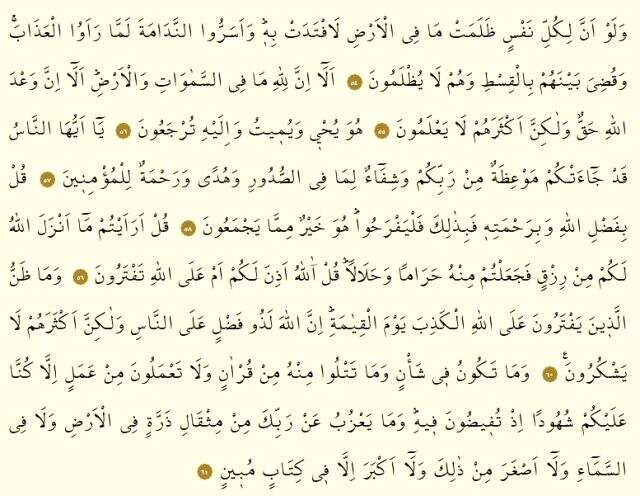 وَلَوْ اَنَّ لِكُلِّ نَفْسٍ ظَلَمَتْ مَا فِى الْاَرْضِ لَافْتَدَتْ بِهٖۜ وَاَسَرُّوا النَّدَامَةَ لَمَّا رَاَوُا الْعَذَابَۚ
وَقُضِىَ بَيْنَهُمْ بِالْقِسْطِ وَهُمْ لَا يُظْلَمُونَ ﴿٥٤﴾ اَلَٓا اِنَّ لِلّٰهِ مَا فِى السَّمٰوَاتِ وَالْاَرْضِۜ اَلَٓا اِنَّ وَعْدَ
اللّٰهِ حَقٌّ وَلٰكِنَّ اَكْثَرَهُمْ لَا يَعْلَمُونَ ﴿٥٥﴾ هُوَ يُحْيٖ وَيُمٖيتُ وَاِلَيْهِ تُرْجَعُونَ ﴿٥٦﴾ يَٓا اَيُّهَا النَّاسُ
قَدْ جَٓاءَتْكُمْ مَوْعِظَةٌ مِنْ رَبِّكُمْ وَشِفَٓاءٌ لِمَا فِى الصُّدُورِ وَهُدًى وَرَحْمَةٌ لِلْمُؤْمِنٖينَ ﴿٥٧﴾ قُلْ
بِفَضْلِ اللّٰهِ وَبِرَحْمَتِهٖ فَبِذٰلِكَ فَلْيَفْرَحُواۜ هُوَ خَيْرٌ مِمَّا يَجْمَعُونَ ﴿٥٨﴾ قُلْ اَرَاَيْتُمْ مَٓا اَنْزَلَ اللّٰهُ
لَكُمْ مِنْ رِزْقٍ فَجَعَلْتُمْ مِنْهُ حَرَامًا وَحَلَالًاۜ قُلْ آٰللّٰهُ اَذِنَ لَكُمْ اَمْ عَلَى اللّٰهِ تَفْتَرُونَ ﴿٥٩﴾ وَمَا ظَنُّ
الَّذٖينَ يَفْتَرُونَ عَلَى اللّٰهِ الْكَذِبَ يَوْمَ الْقِيٰمَةِۜ اِنَّ اللّٰهَ لَذُو فَضْلٍ عَلَى النَّاسِ وَلٰكِنَّ اَكْثَرَهُمْ لَا
يَشْكُرُونَ۟ ﴿٦٠﴾ وَمَا تَكُونُ فٖى شَأْنٍ وَمَا تَتْلُوا مِنْهُ مِنْ قُرْاٰنٍ وَلَا تَعْمَلُونَ مِنْ عَمَلٍ اِلَّا كُنَّا
عَلَيْكُمْ شُهُودًا اِذْ تُفٖيضُونَ فٖيهِۜ وَمَا يَعْزُبُ عَنْ رَبِّكَ مِنْ مِثْقَالِ ذَرَّةٍ فِى الْاَرْضِ وَلَا فِى
السَّمَٓاءِ وَلَٓا اَصْغَرَ مِنْ ذٰلِكَ وَلَٓا اَكْبَرَ اِلَّا فٖى كِتَابٍ مُبٖينٍ ﴿٦١﴾